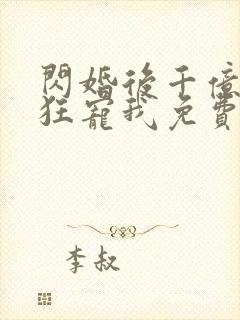 閃婚後千億
狂寵我免費
李叔